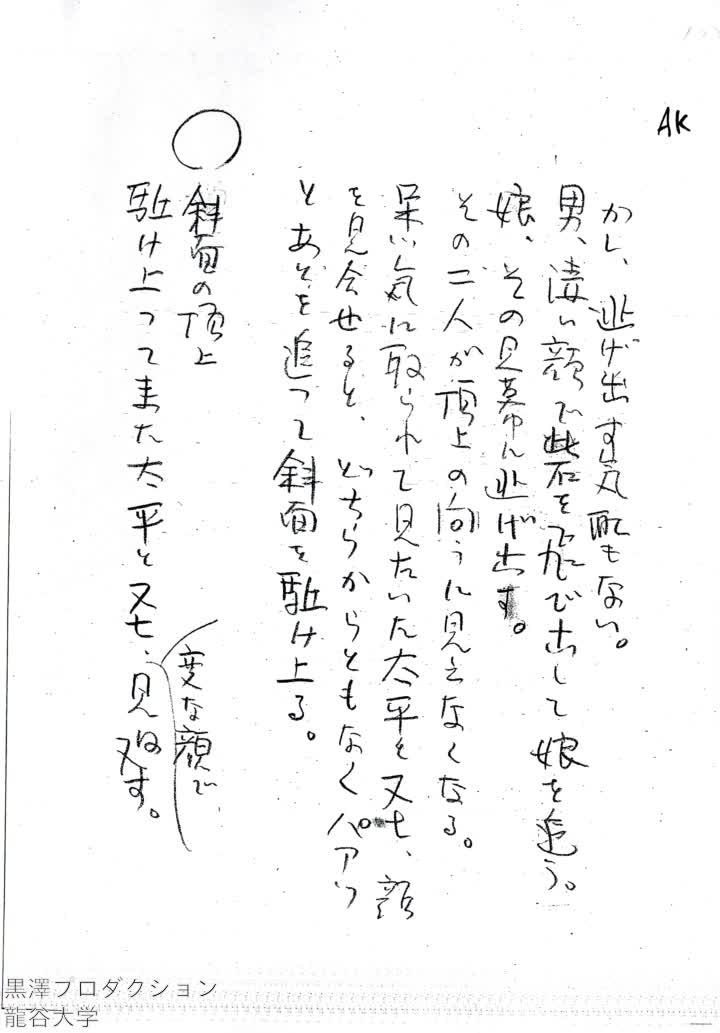 AK
かし、逃げ出す気配もない。
男、凄い顔で岩を飛び出して娘を追う。
娘、その見幕に逃げ出す。
その二人が頂上の向うに見えなくなる。
呆い気に取られて見たいた太平と又七、顔
を見合せると、どちらからともなくパアッ
とあとを追って斜面を駈け上る。
○
斜面の頂上
駈け上ってきた太平と又七、見交す。
変な顔で、
黒澤プロダクション
龍谷大学